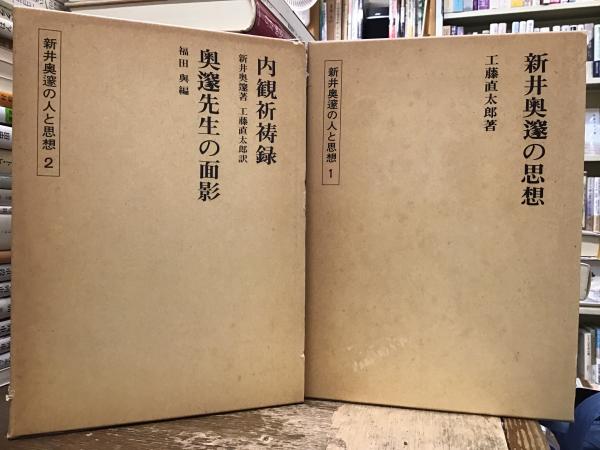 新井奥邃の思想
工藤直太郎著
新井奥邃の人と思想 1
内観祈祷録
新井奥邃著 工藤直太郎訳
奥邃先生の面影
福田與編
新井奥邃の人と思想 2